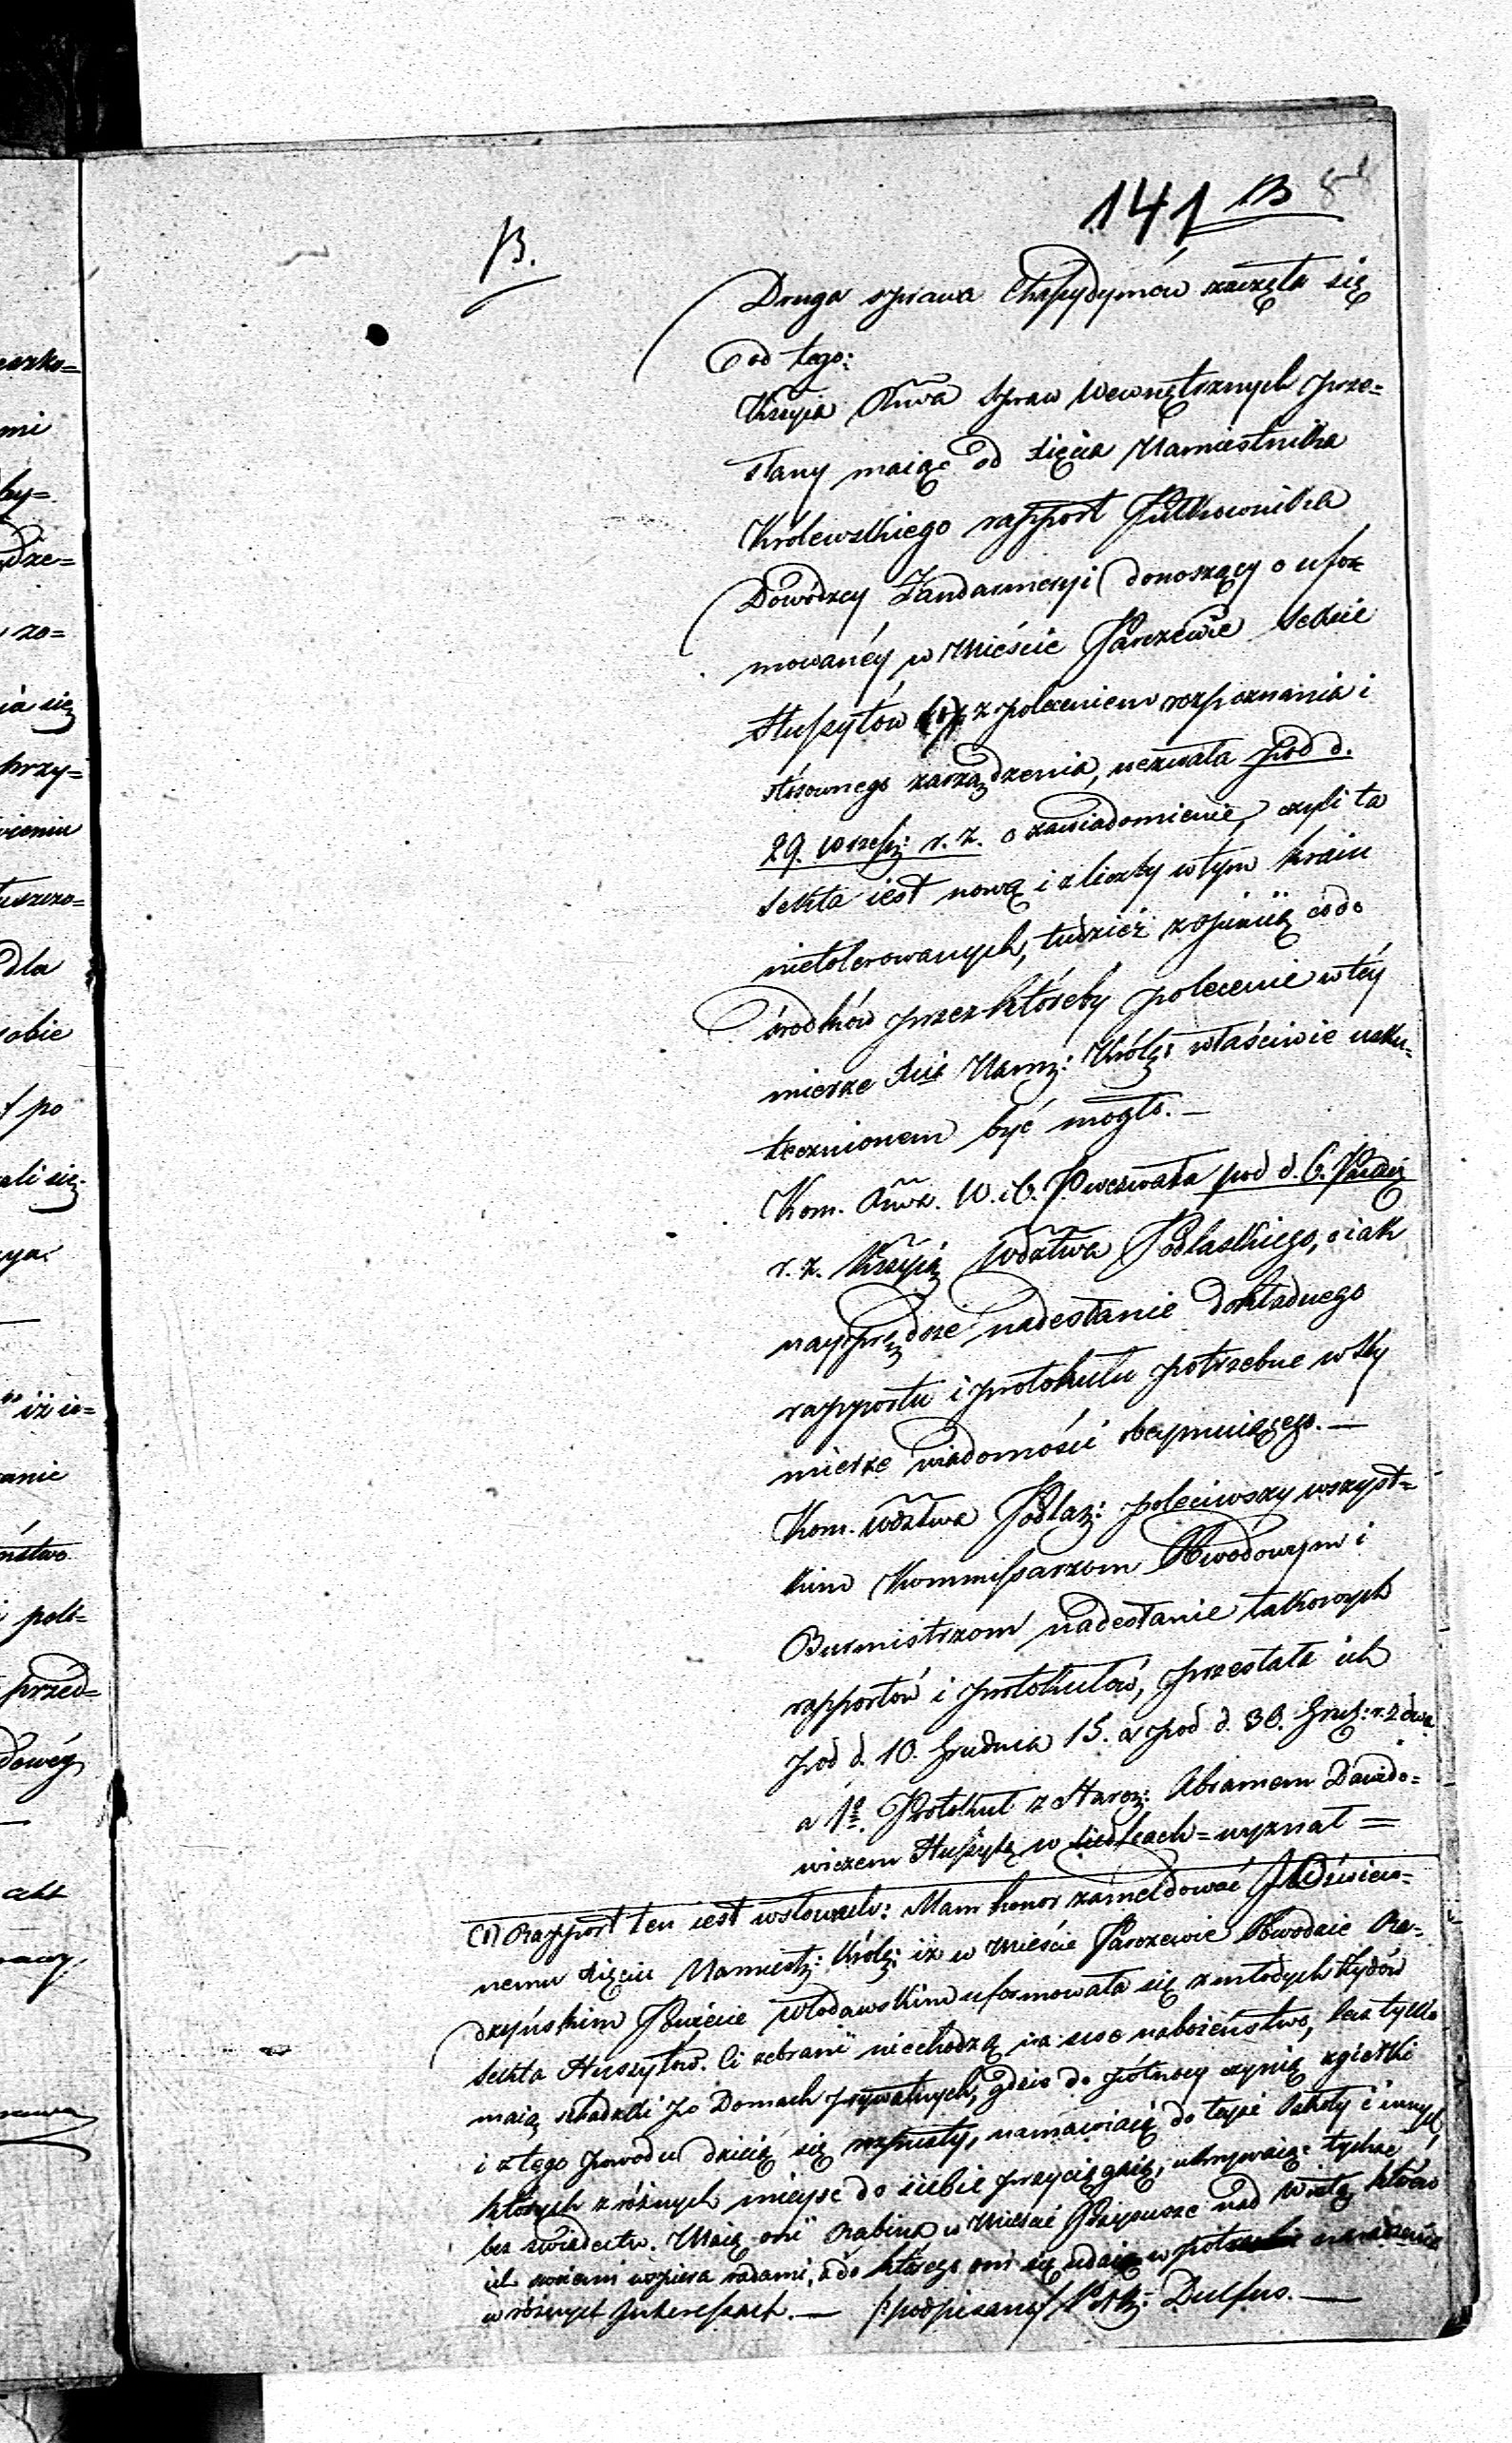 141 B 88
B.
Druga sprawa Chassydymów zaczęła się
od tego:
Kssyia Rwa Spraw Wewnętrznych prze=
słany maiąc od Xięcia Namiestnika
Królewskiego rapport Pułkownika
Dowódzcy Żandarmeryi donoszący o ufor=
mowanéy w Mieście Parczewie Sekcie
Hussytów (1) z poleceniem rozpoznania i
stósownego zarządzenia, wezwała pod d.
29. wrześ: r. z. o zawiadomienie, czyli ta
sekta iest nową i z liczby w tym kraiu
nietolerowanych, tudzież z opinią co do
środków przez któreby polecenie w téy
mierze Xcia Nam: Król: właściwie usku=
tecznionem być mogło. —
Kom. Rwa. W. i O. P. wezwała pod d. 6. Paźdź:
r. z. Kssyią Wdztwa Podlaskiego, o iak
nayprędsze nadesłanie dokładnego
rapportu i protokułu potrzebne w téy
mierze wiadomości obeymuiącego. —
Kom. Wdztwa Podlas: poleciwszy wszyst=
kim Kommissarzom Obwodowym i
Burmistrzom nadesłanie takowych
rapportów i protokułów, przesłała ich
pod d. 10. Grudnia 15. a pod d. 30. Grud: r. z. dwa
a 1o. Protokuł z Staroz: Abramem Dawido=
wiczem Hussytą w Siedlcach = wyznał =
(1) Rapport ten iest w słowach: Mam honor zameldować JOświeco=
nemu Xięciu Namiest: Król: iż w Mieście Parczewie Obwodzie Ra=
dzyńskim Powiecie Włodawskim uformowała się z młodych Żydów
sekta Hussytów. Ci zebrani niechodzą na swe nabożeństwo, lecz tylko
maią schadzki po Domach prywatnych, gdzie do północy czynią zgiełki
i z tego powodu dzieią się rozpusty, namawiaią do teyże Sekty i innych
których z różnych mieysc do siebie przyciągaią, ukrywaiąc tychże
bez świadectw. Maią oni Rabina w Mieście Przysusze nad Wisłą który
ich swoiemi wspiera radami, a do którego oni się udaią w potrzebie
w różnych Interessach. — (podpisany) Płk: Dulfus. —